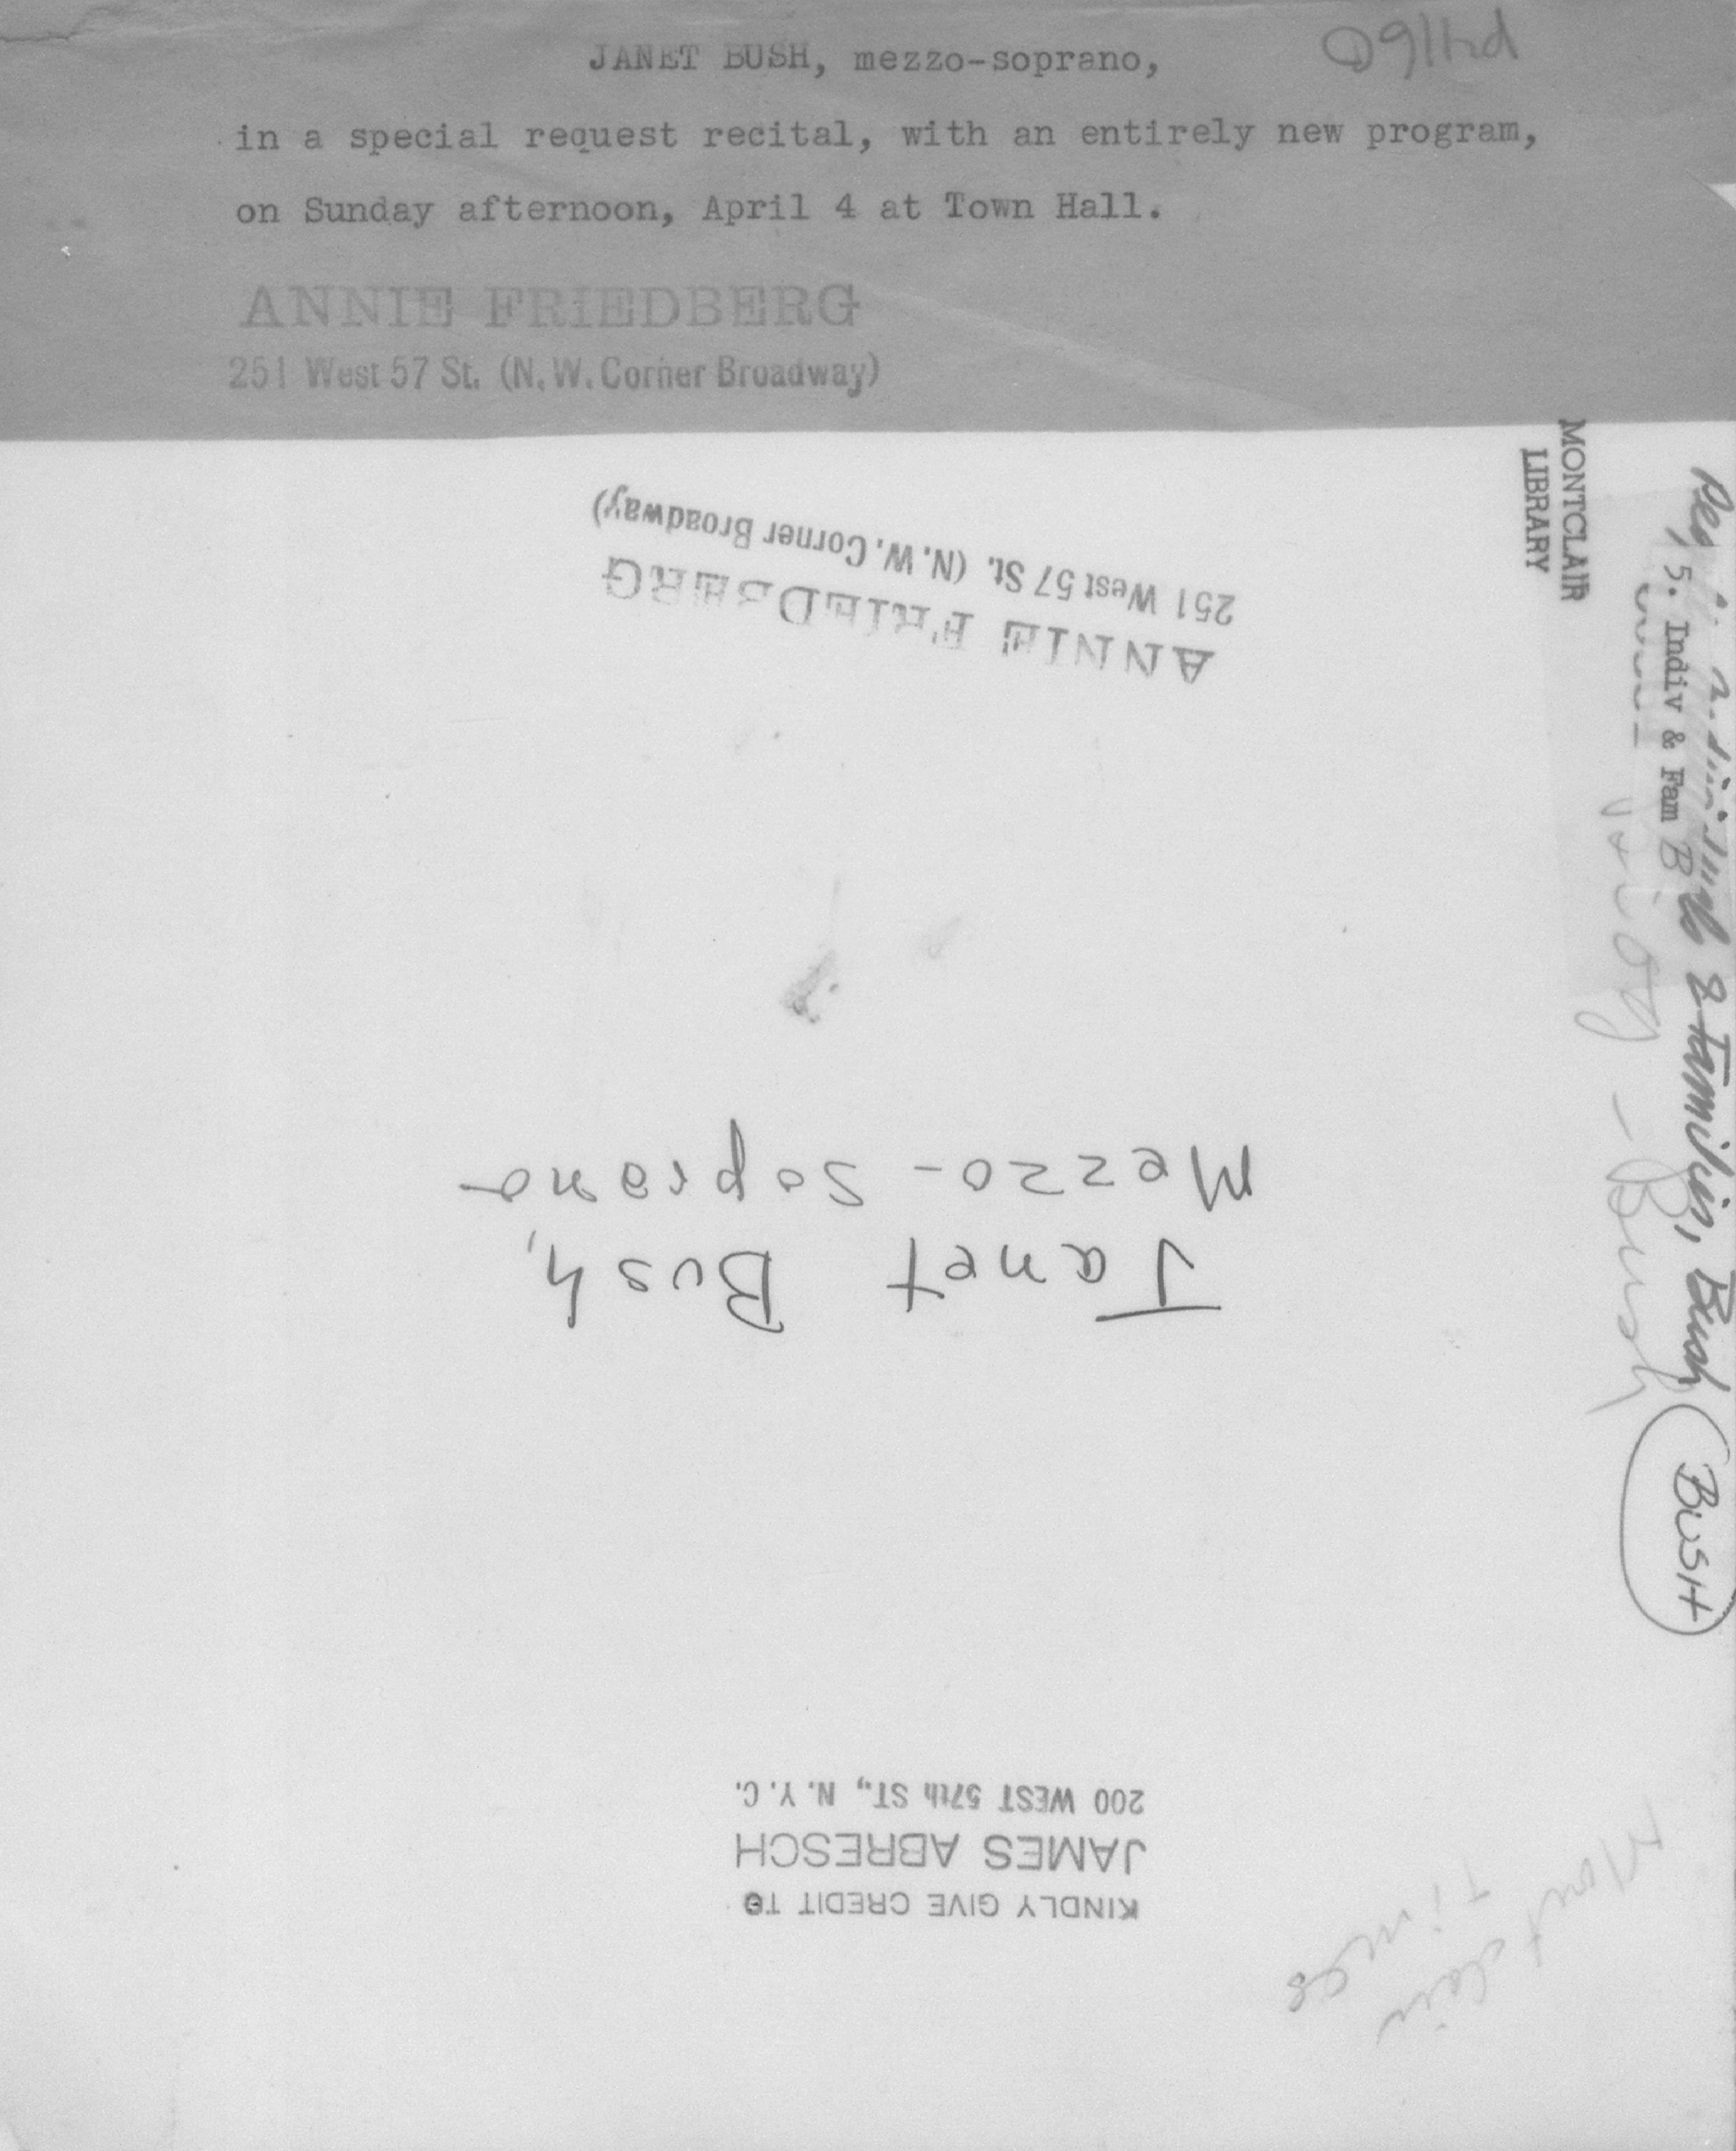 JANET BUSH, mezzo-soprano,
in a special request recital, with an entirely new program,
on Sunday afternoon, April 4 at Town Hall.
ANNIE FRIEDBERG
251 West 57 St. (N. W. Corner Broadway)
ANNIE FRIEDBERG
251 West 57 St. (N. W. Corner Broadway)
MONTCLAIR
LIBRARY
5. Indiv & Fam B
& Families, Bush
- Bush
BUSH
Janet Bush,
Mezzo-soprano
KINDLY GIVE CREDIT TO
JAMES ABRESCH
200 WEST 57th ST., N. Y. C.
Montclair
Times